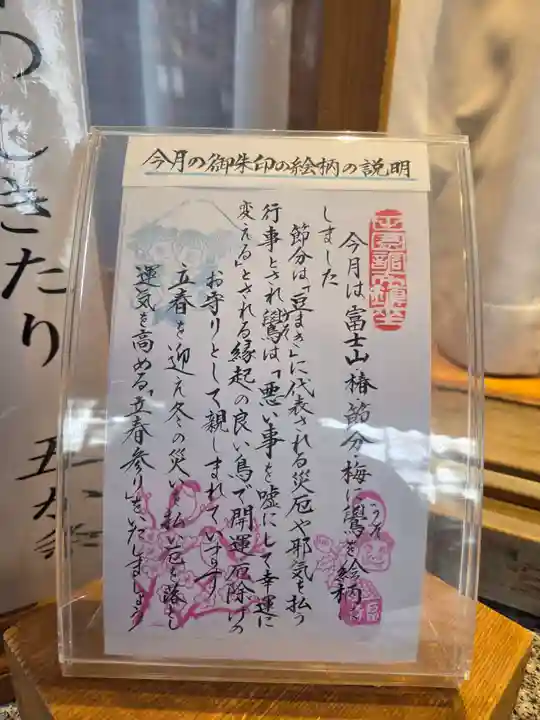 今月の御朱印の絵柄の説明
今月は、富士山・椿・節分・梅に鷽を絵柄に
うそ
しました
節分は、「豆まき」に代表される災厄や邪気を払う
行事とされ鷽は、「悪い事を嘘にして幸運に
うそ
変える」とされる縁起の良い鳥で開運厄除けの
お守りとして親しまれています
立春を迎え冬の災いを払い厄を落とし
運気を高める「立春参り」をいたしましょう
つしきたり